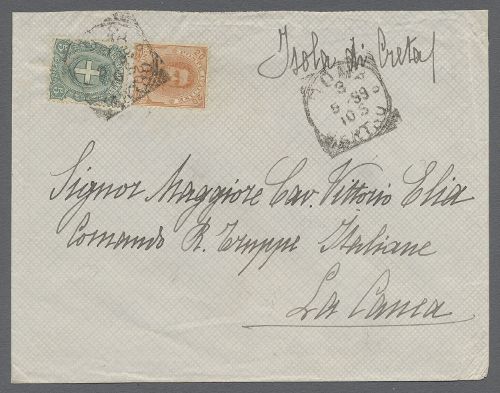 Isola di Creta
ROMA
8-99
10 S
Signor Maggiore Cav. Vittorio Elia
Comando R. Truppe Italiane
La Canea